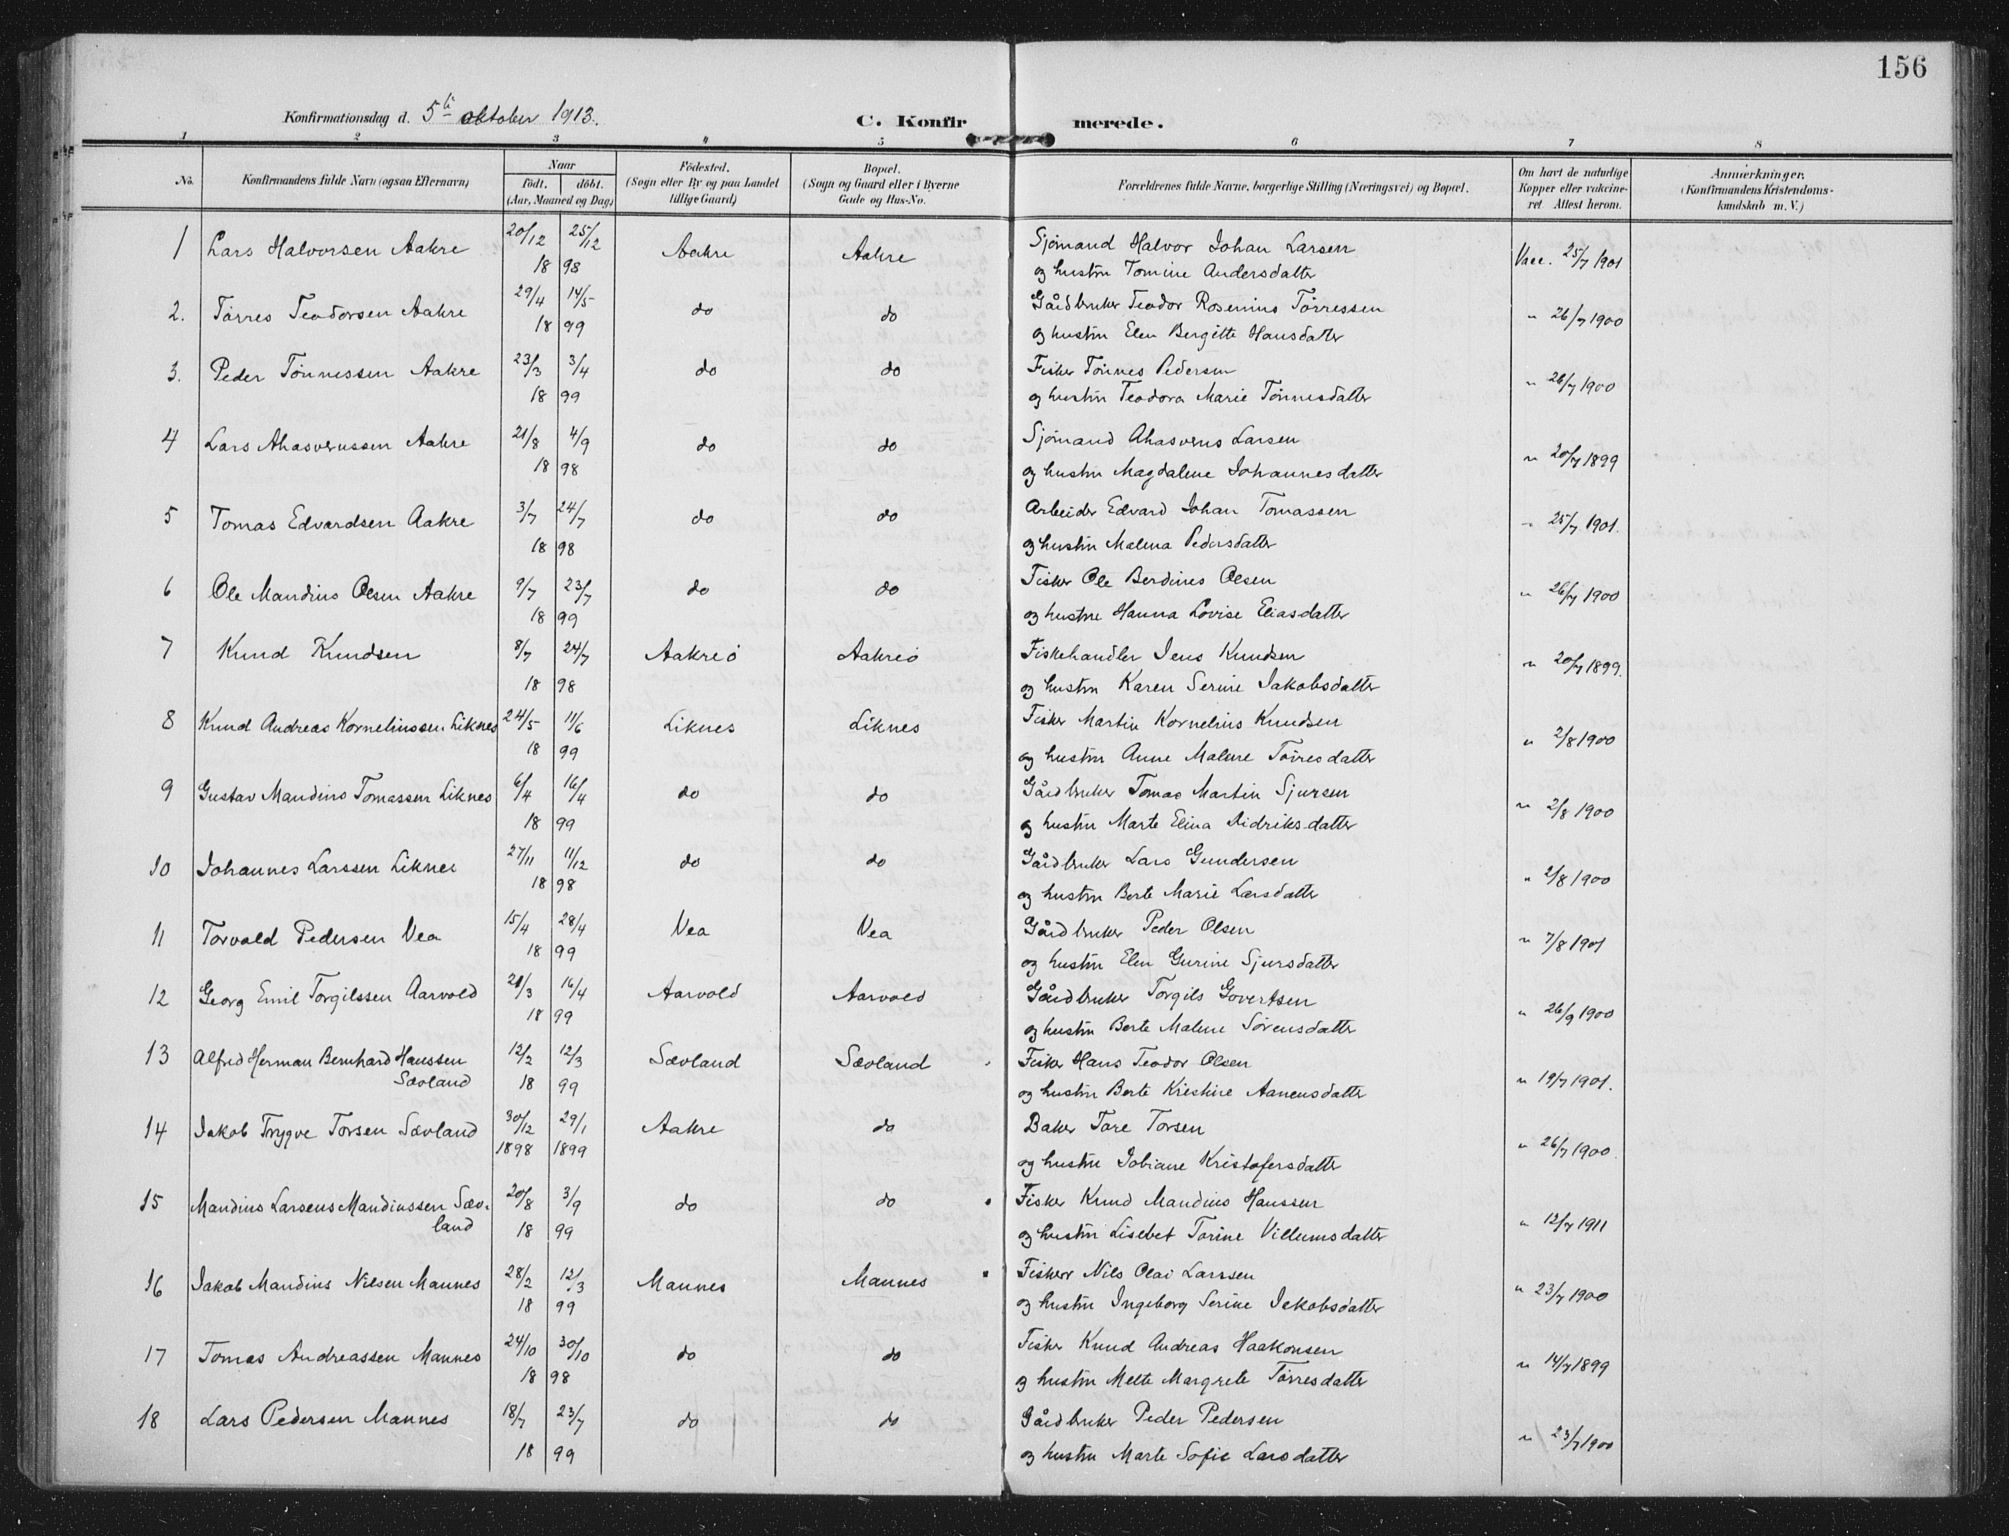 156
Konfirmationsdag d. 5ti oktober 1913.
C. Konfirmerede.
1 2 3 4 5 6 7 8
No. Konfirmandens fulde Navn (ogsaa Efternavn) Naar født. døbt. (Aar, Maaned og Dag) Födested. (Sogn eller By og paa Landet tillige Gaard) Bopæl. (Sogn og Gaard eller i Byerne Gade og Hus-No. Forældrenes fulde Navne, borgerlige Stilling (Næringsvei) og Bopæl. Om havt de naturlige Kopper eller vakcineret Attest herom. Anmærkninger. (Konfirmandens Kristendomskundskab m. V.)
1 Lars Halvorsen Aakre 20/12 25/12 Aakre Aakre Sjømand Halvor Johan Larsen Vacc. 25/7 1901
18 98 og hustru Tomine Andersdatter
2. Tørres Teodorsen Aakre 29/4 14/5 do do Gårdbruker Teodor Rosenius Tørressen " 26/7 1900
18 99 og hustru Elen Bergitte Hansdatter
3. Peder Tønnessen Aakre 23/3 3/4 do do Fisker Tønnes Pedersen " 26/7 1900
18 99 og hustru Teodora Marie Tønnesdatter
4 Lars Ahasverussen Aakre 21/8 4/9 do do Sjømand Ahasverus Larsen " 20/7 1899
18 98 og hustru Magdalene Johannesdatter
5 Tomas Edvardsen Aakre 3/7 24/7 do do Arbeider Edvard Johan Tomassen " 25/7 1901.
18 98 og hustru Malena Pedersdatter
6 Ole Mandius Olsen Aakre 9/7 23/7 do do Fisker Ole Berdines Olsen " 26/7 1900
18 99 og hustru Hanna Lovise Eliasdatter
7 Knud Knudsen 8/7 24/7 Aakreø Aakreø Fiskehandler Jens Knudsen " 20/7 1899.
18 98 og hustru Karen Serine Jakobsdatter
8 Knud Andreas Korneliussen Liknes 24/5 11/6 Liknes Liknes Fisker Martin Kornelius Knudsen " 2/8 1900
18 99 og hustru Anne Malene Tørresdatter
9 Gustav Mandius Tomassen Liknes 6/4 16/4 do do Gårdbruker Tomas Martin Sjursen " 2/8 1900
18 99 og hustru Marte Elina Didriksdatter
10 Johannes Larssen Liknes 27/11 11/12 do do Gårdbruker Lars Gundersen " 2/8 1900
18 98 og hustru Berte Marie Larsdatter
11 Torvald Pedersen Vea 15/4 28/4 Vea Vea Gårdbruker Peder Olsen " 7/8 1901
18 99 og hustru Elen Gurine Sjursdatter
12 Georg Emil Torgilssen Aarvold 21/3 16/4 Aarvold Aarvold Gårdbruker Torgils Govertsen " 26/9 1900
18 99 og hustru Berte Malene Sørensdatter
13 Alfred Herman Bernhard Hanssen 12/2 12/3 Sævland Sævland Fisker Hans Teodor Olsen
Sævland 18 99 og hustru Berte Kristine Aanensdatter " 19/7 1901.
14 Jakob Trygve Torsen Sævland 30/12 29/1 Aakre do Baker Tore Torsen
1898 1899 og hustru Tobiane Kristofersdatter " 26/7 1900.
15 Mandius Larsens Mandiussen Sæv- 20/8 3/9 do do Fisker Knud Mandius Hanssen
land 18 99 og hustru Lisebet Torine Villumsdatter " 12/7 1911
16 Jakob Mandius Nilsen Mannes 28/2 12/3 Mannes Mannes Fisker Nils Olai Larssen " 23/7 1900
18 99 og hustru Ingeborg Serine Jakobsdatter
17 Tomas Andreassen Mannes 24/10 30/10 do do Fisker Knud Andreas Haakonsen " 14/7 1899
18 98 og hustru Mette Margrete Tørresdatter
18 Lars Pedersen Mannes 18/7 23/7 do do Gårdbruker Peder Pedersen " 23/7 1900
18 99 og hustru Marte Sofie Larsdatter